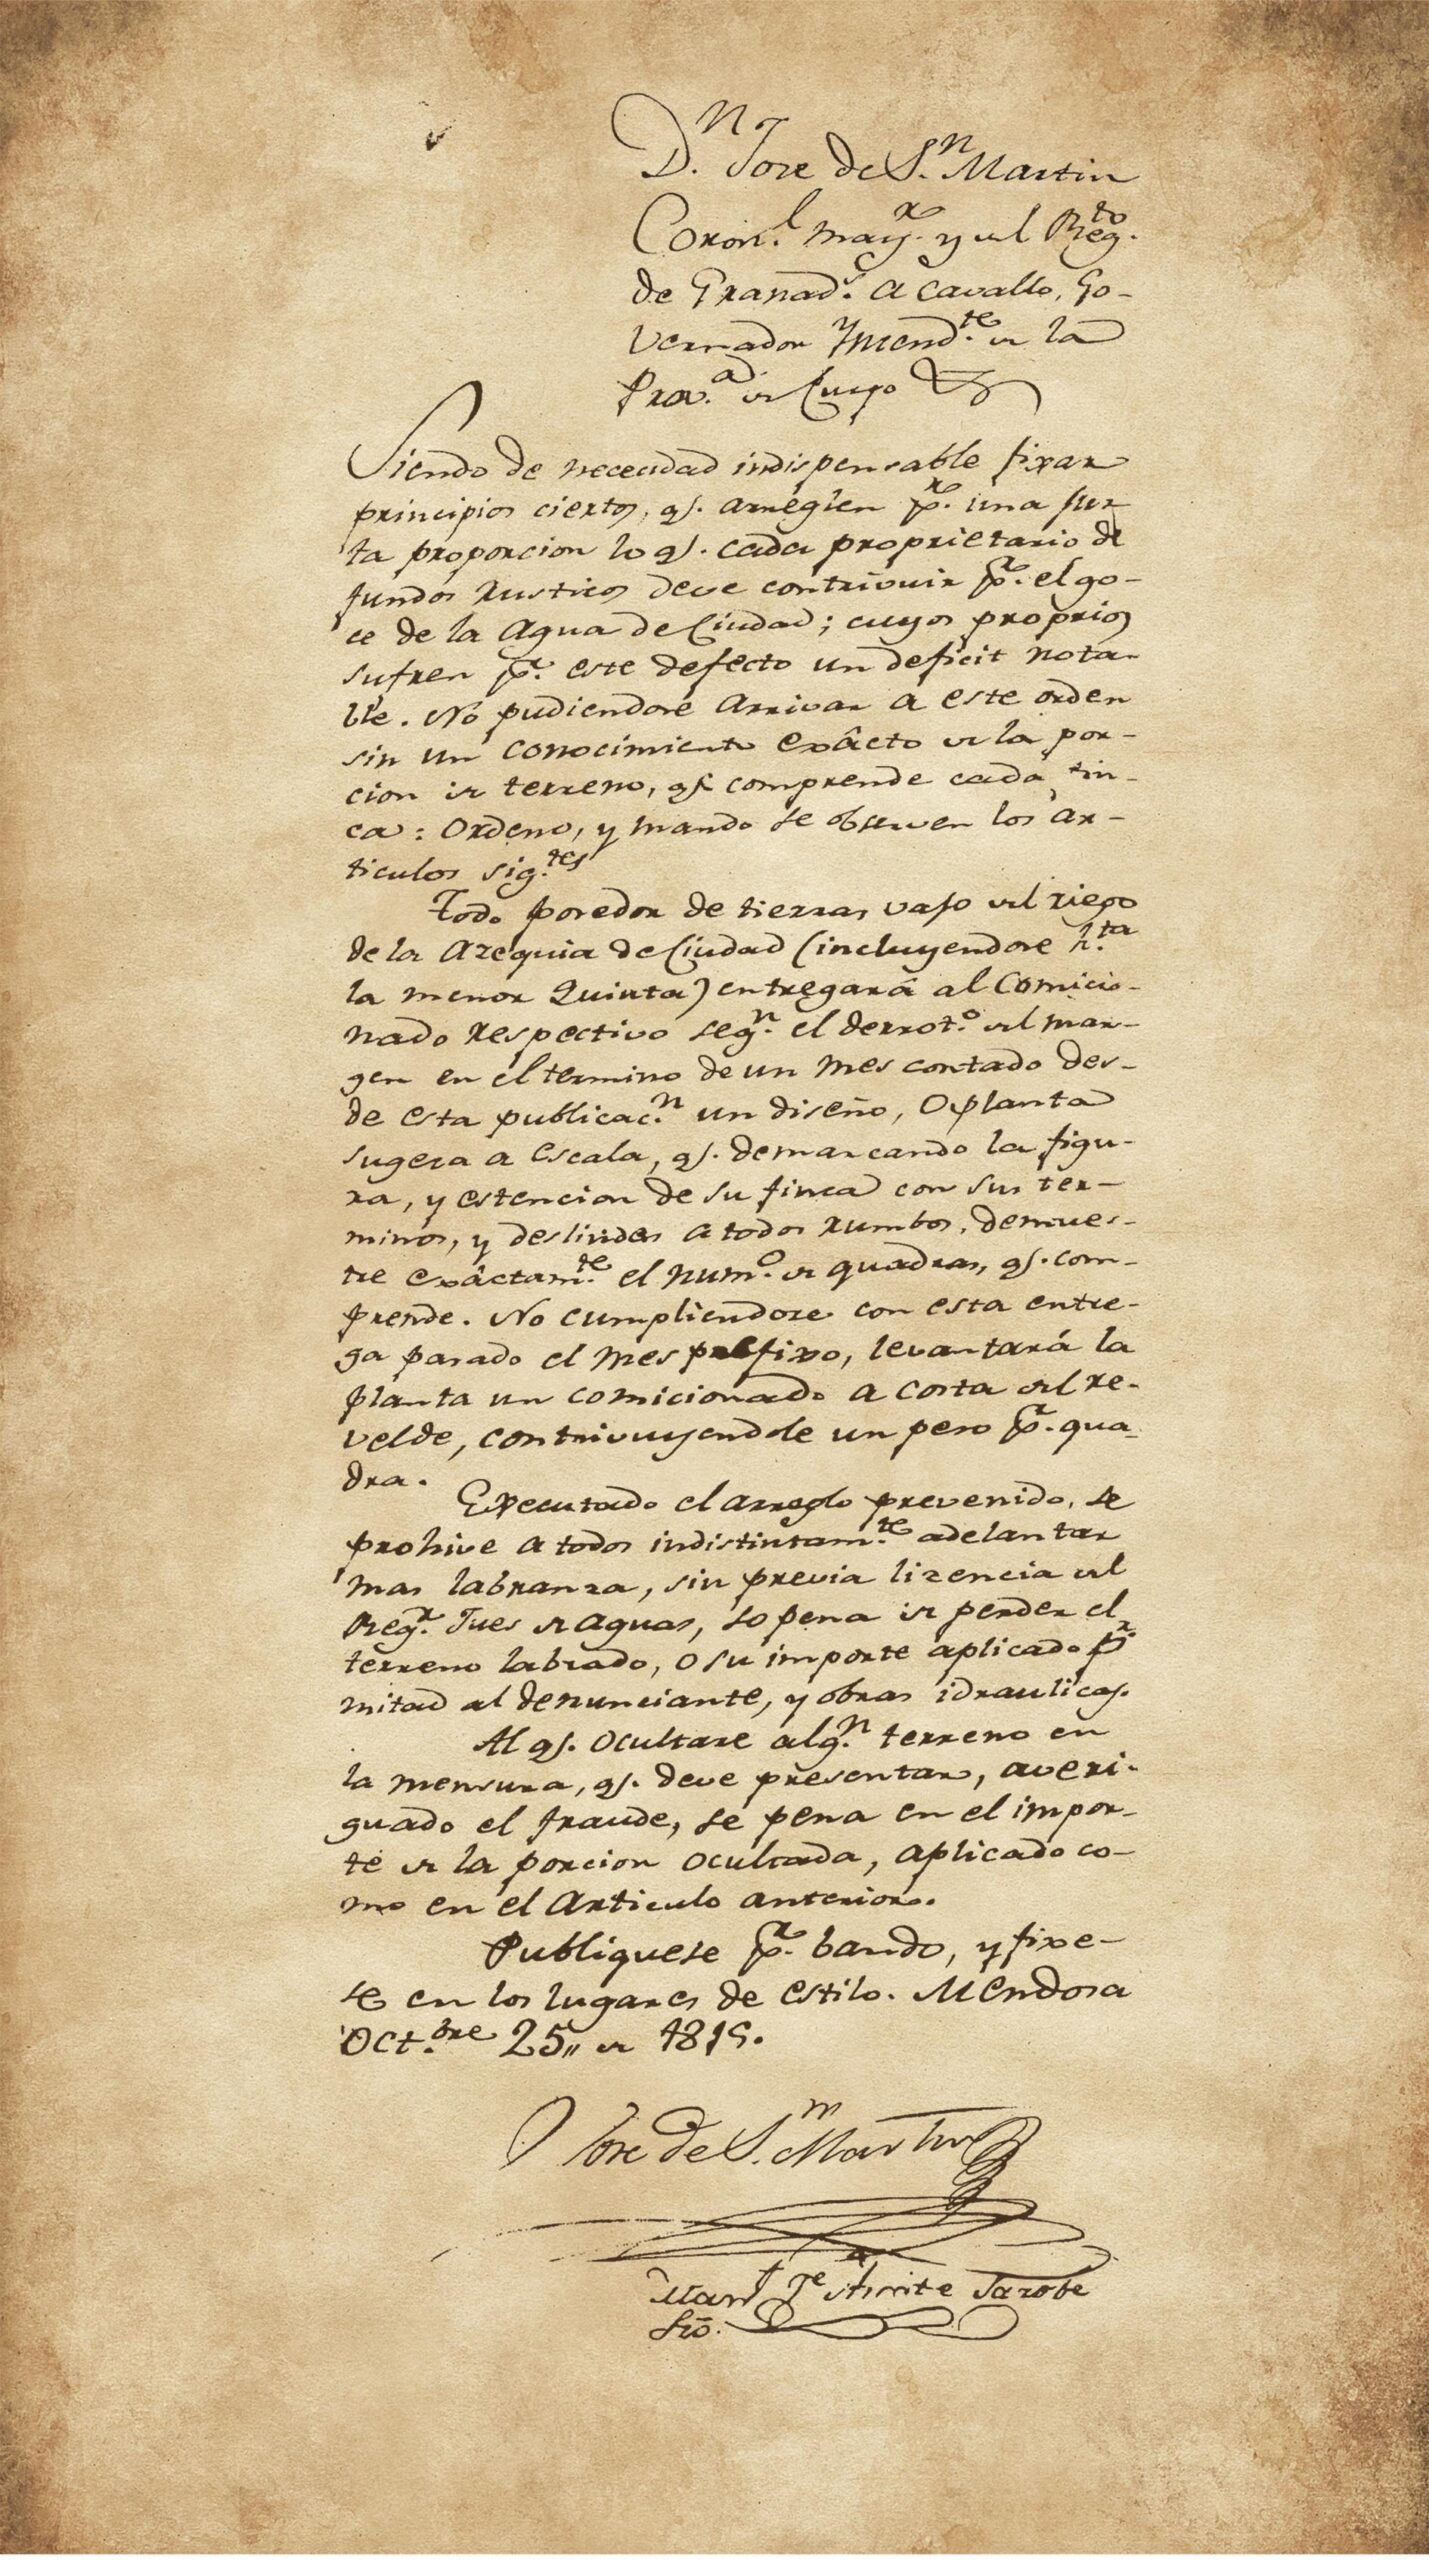 Dn. Jose de Sn. Martin
Coronl. mayr. y del Regto.
de Granads. a Cavallo, Go-
vernador Yntendte. de la
Prova. de Cuyo
Siendo de necesidad indispensable fixar
principios ciertos, qe. arreglen pr. una jus-
ta proporcion lo qe. cada proprietario de
fundos rusticos deve contrivuir pr. el go-
ce de la Agua de Ciudad; cuyos proprios
sufren pr. este defecto un deficit nota-
ble. No pudiendose arrivar a este orden
sin un conocimiento exâcto de la por-
cion de terreno, qe. comprende cada fin-
ca: Ordeno, y mando se observen los ar-
ticulos sigtes.
Todo posedor de tierras vajo del riego
de la Azequia de Ciudad (incluyendose hta.
la menor Quinta) entregará al Comicio-
nado respectivo segn. el derroto. del mar-
gen en el termino de un mes contado des-
de esta publicacn. un diseño, o planta
sugeta a Escala, qe. demarcando la figu-
ra, y estencion de su finca con sus ter-
minos, y deslindes a todos rumbos, demues-
tre exâctamte. el numo. de quadras, qe. com-
prende. No cumpliendose con esta entre-
ga pasado el mes prefixo, levantará la
planta un comicionado a costa del re-
velde, contrivuyendole un peso pr. qua-
dra.
Executado el arreglo prevenido, se
prohive a todos indistintamte. adelantar
mas labranza, sin previa lizencia del
Regr. Jues de aguas, so pena de perder el
terreno labrado, o su importe aplicado pr.
mitad al denunciante, y obras idraulicas.
Al qe. ocultare algn. terreno en
la mensura, qe. deve presentar, averi-
guado el fraude, se pena en el impor-
te de la porcion ocultada, aplicado co-
mo en el Articulo anterior.
Publiquese pr. bando, y fixe-
se en los lugares de estilo. Mendosa
Octbre. 25,, de 1815.
Jose de Sn. Martin
Je Amite Sarobe
Srio.